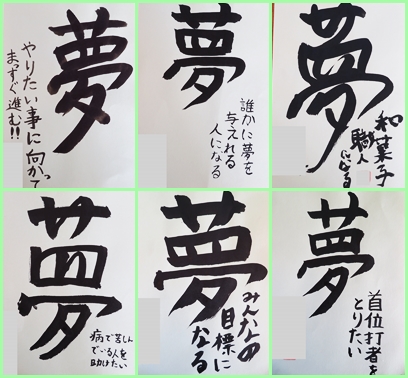 夢
やりたい事に向かって
まっすぐ進む!!
夢
誰かに夢を
与えれる
人になる
夢
和菓子
職人
になる
夢
病で苦しん
でいる人を
助けたい
夢
みんなの
目標に
なる
夢
首位打者を
とりたい